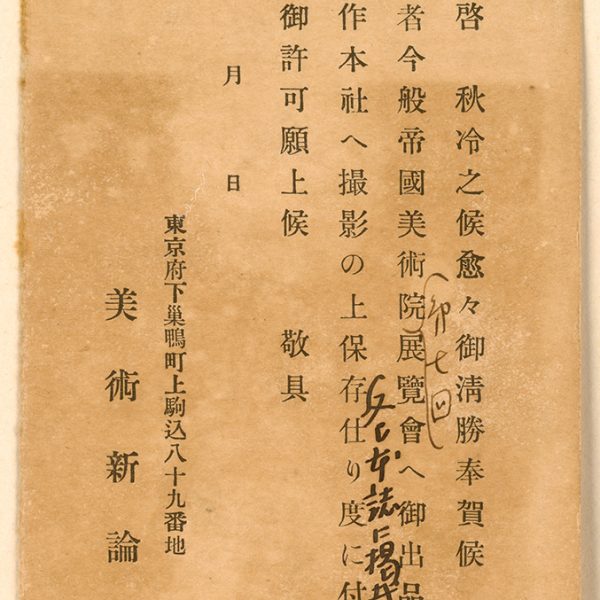 啓　秋冷之候愈々御淸勝奉賀候
(第七回)
者今般帝國美術院展覽會へ御出品
本誌に掲
作本社へ撮影の上保存仕り度に付
御許可願上候　敬具
月　日
東京府下巢鴨町上駒込八十九番地
美術新論